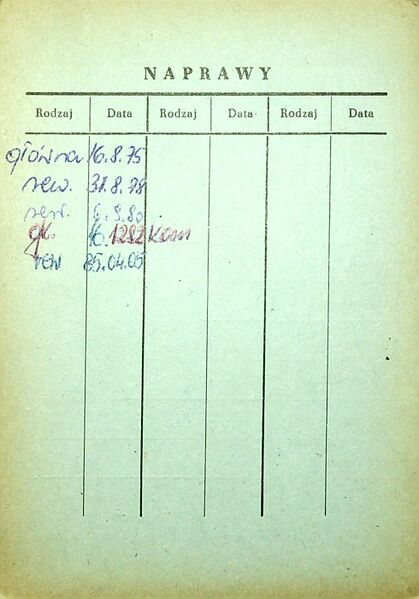 NAPRAWY
Rodzaj Data Rodzaj Data Rodzaj Data
główna 16.8.75
rew. 31.8.78
rew. 6.9.80
gł. 16.1282 Kam
rew 85.04.05